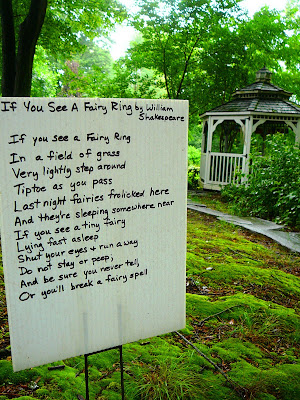 If You See A Fairy Ring by William
Shakespeare
If you see a Fairy Ring
In a field of grass
Very lightly step around
Tiptoe as you pass
Last night fairies frolicked here
And they're sleeping somewhere near
If you see a tiny fairy
Lying fast asleep
Shut your eyes & run away
Do not stay or peep,
And be sure you never tell,
Or you'll break a fairy spell